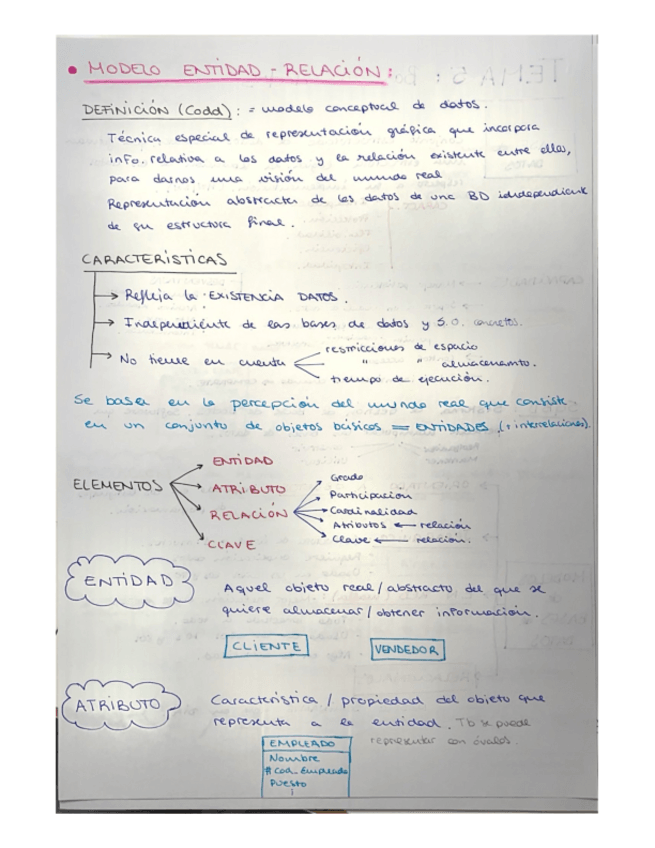 • MODELO ENTIDAD - RELACIÓN:
DEFINICIÓN (Codd): = modelo conceptual de datos.
Técnica especial de representación gráfica que incorpora
info. relativa a los datos y la relación existente entre ellos,
para darnos una visión del mundo real
Representación abstracta de los datos de una BD independiente
de su estructura final.
CARACTERÍSTICAS
→ Refleja la EXISTENCIA DATOS.
→ Independiente de las bases de datos y S.O. concretos.
→ No tiene en cuenta
restricciones de espacio
" " almacenamto.
tiempo de ejecución.
Se basa en la percepción del mundo real que consiste
en un conjunto de objetos básicos = ENTIDADES (+ interrelaciones).
ELEMENTOS
ENTIDAD
ATRIBUTO
RELACIÓN
CLAVE
Grado
Participación
Cardinalidad
Atributos ← relación
Clave ← relación.
ENTIDAD
Aquel objeto real/abstracto del que se
quiere almacenar/obtener información.
CLIENTE VENDEDOR
ATRIBUTO
Característica / propiedad del objeto que
representa a la entidad. Tb se puede
representar con óvalos.
EMPLEADO
Nombre
# Cod_Empleado
Puesto